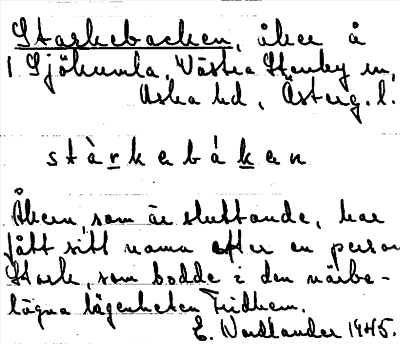 Starkebacken, åker å
1 Sjökumla, Västra Stenby sn,
Aska hd, Österg. l.
stàrkebáken
Åkern, som är sluttande, har
fått sitt namn efter en person
Stark, som bodde i den närbe-
lägna lägenheten Fridhem.
E. Nordlander 1945.